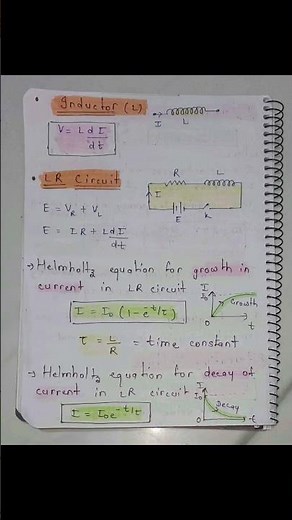 Inductor (L)
I L
V = L dI/dt
LR Circuit
R L
I
E K
E = V_R + V_L
E = IR + L dI/dt
→ Helmholtz equation for growth in
current in LR circuit
I
I₀
Growth
O t
I = I₀ (1 - e^-t/τ)
τ = L/R = time constant
→ Helmholtz equation for decay of
current in LR circuit
I
I₀
Decay
O t
I = I₀e^-t/τ